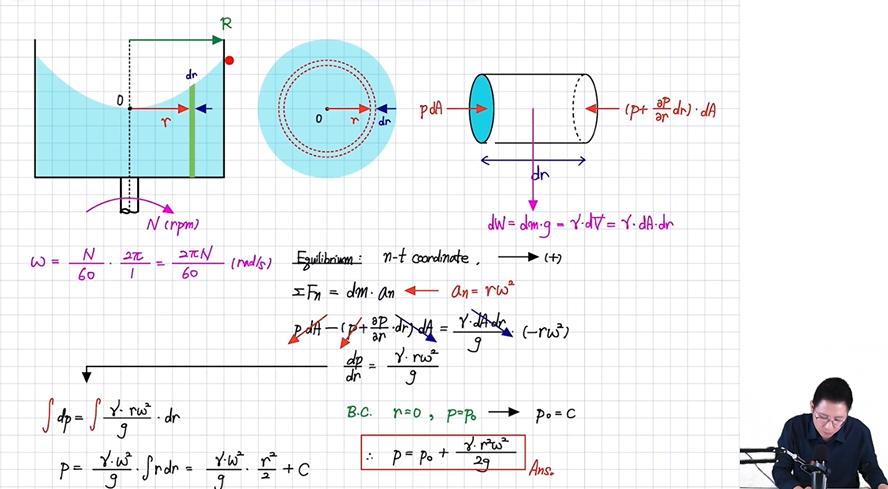 R
dr
O
r
N (rpm)
O
r
dr
p dA
(p + ∂P/∂r dr) · dA
dr
dW = dm·g = γ·dV = γ·dA·dr
ω = N/60 · 2π/1 = 2πN/60 (rad/s)
Equilibrium: n-t coordinate. → (+)
ΣFn = dm · an ← an = rω²
p dA − (p + ∂P/∂r · dr) dA = γ·dA·dr/g · (−rω²)
dp/dr = γ·rω²/g
∫dp = ∫ γ·rω²/g · dr
p = γ·ω²/g · ∫rdr = γ·ω²/g · r²/2 + C
B.C. r=0, p=p₀ → p₀ = C
∴ p = p₀ + γ·r²ω²/2g
Ans.